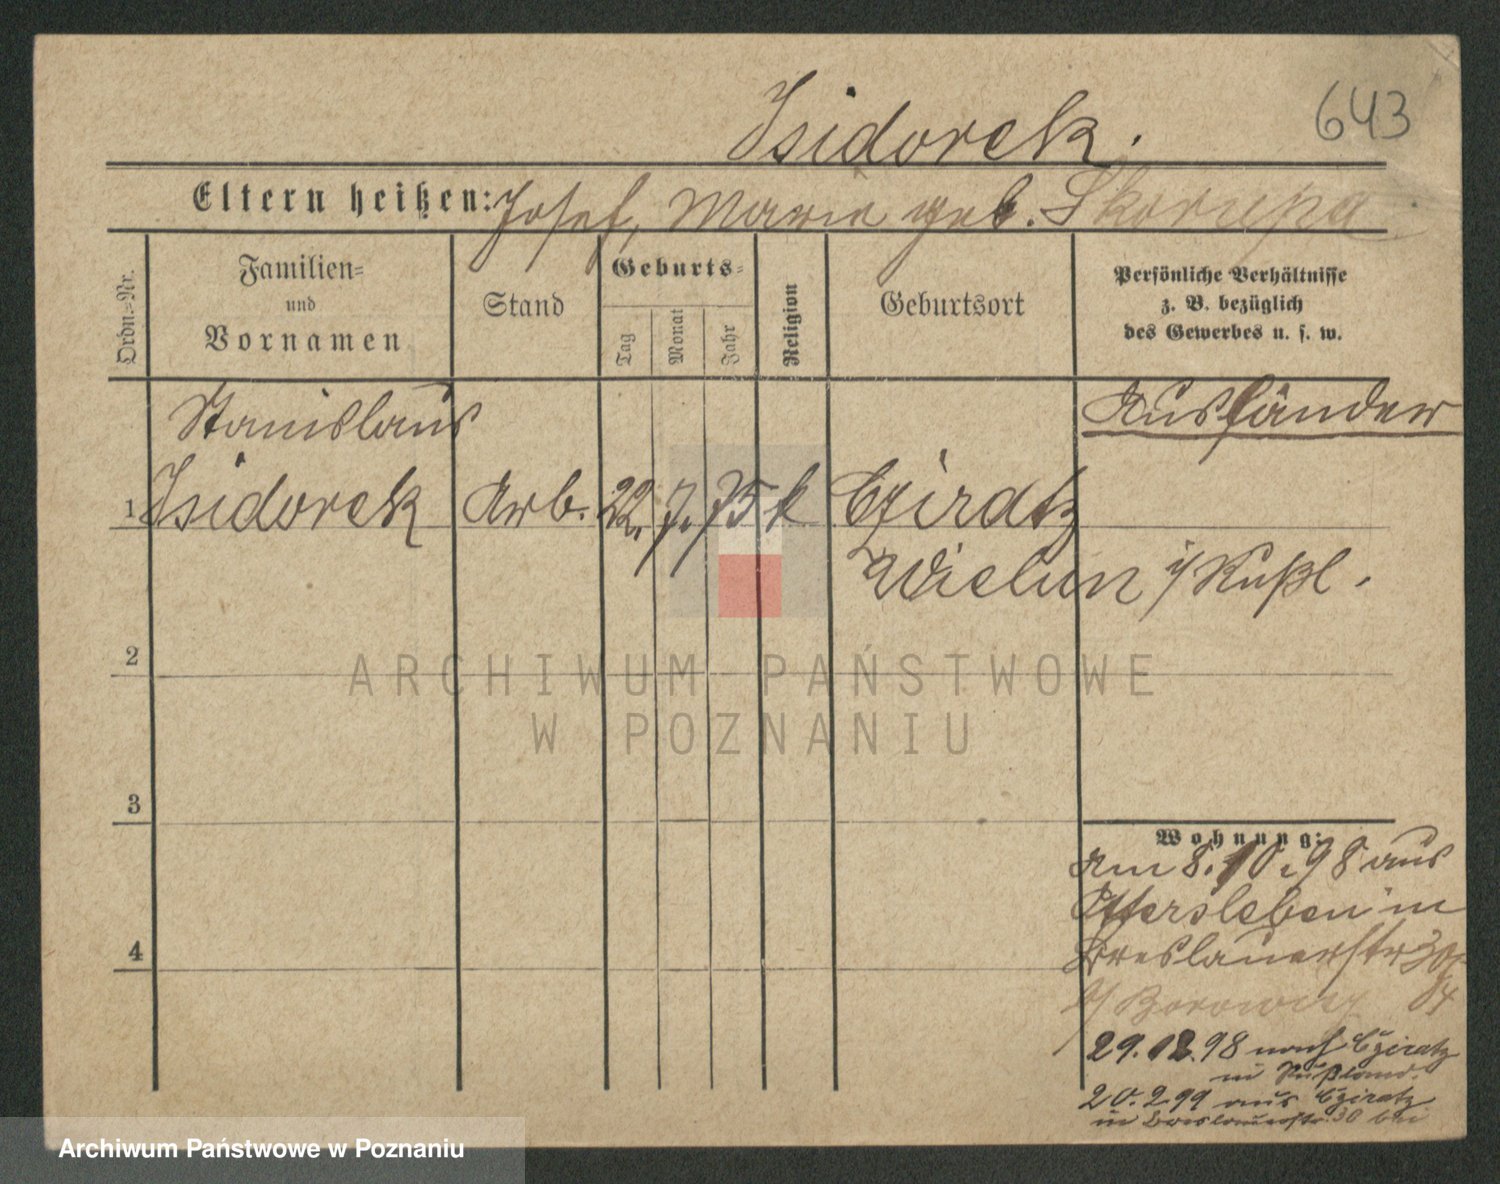 643
Isidorek.
Eltern heißen: Josef, Marie geb. Skorupa
Ordn.=Nr.
Familien=
und
Vornamen
Stand
Geburts=
Tag
Monat
Jahr
Religion
Geburtsort
Persönliche Verhältnisse
z. B. bezüglich
des Gewerbes u. s. w.
Stanislaus
Ausländer
1 Isidorek Arb. 22. 7. 75 k Cziratz
Wielun i/ Rußl.
2
ARCHIWUM PAŃSTWOWE
W POZNANIU
3
Wohnung:
am 8.10.98 aus
Ottersleben in
4
Breslauerstr 30
b/ Borowicz
29.12.98 nach Cziratz
in Rußland.
20.2.99 aus Cziratz
in Breslauerstr. 30 bei
Archiwum Państwowe w Poznaniu